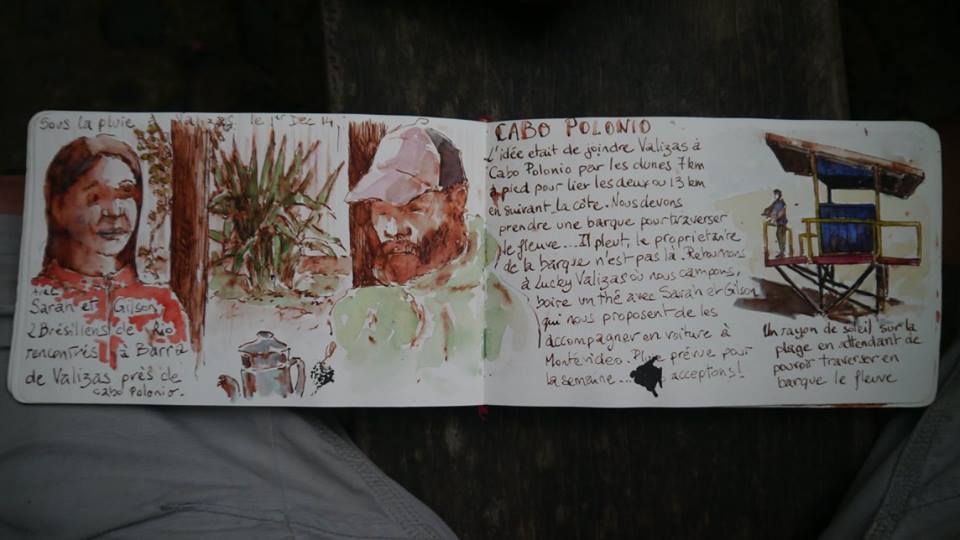 Sous la pluie à Valizas, le 1er Dec 14
avec
Sarah et Gilson,
2 Brésiliens de Rio
rencontrés à Barra
de Valizas près de
Cabo Polonio.
CABO POLONIO
L'idée etait de joindre Valizas à
Cabo Polonio par les dunes, 7km
à pied pour lier les deux ou 13 km
en suivant la côte. Nous devons
prendre une barque pour traverser
le fleuve... Il pleut, le proprietaire
de la barque n'est pas là. Retournons
à Lucky Valizas où nous campons,
boire un thé avec Sarah et Gilson
qui nous proposent de les
accompagner en voiture à
Montévideo. Pluie prévue pour
la semaine... acceptons!
Un rayon de soleil sur la
plage en attendant de
pouvoir traverser en
barque le fleuve